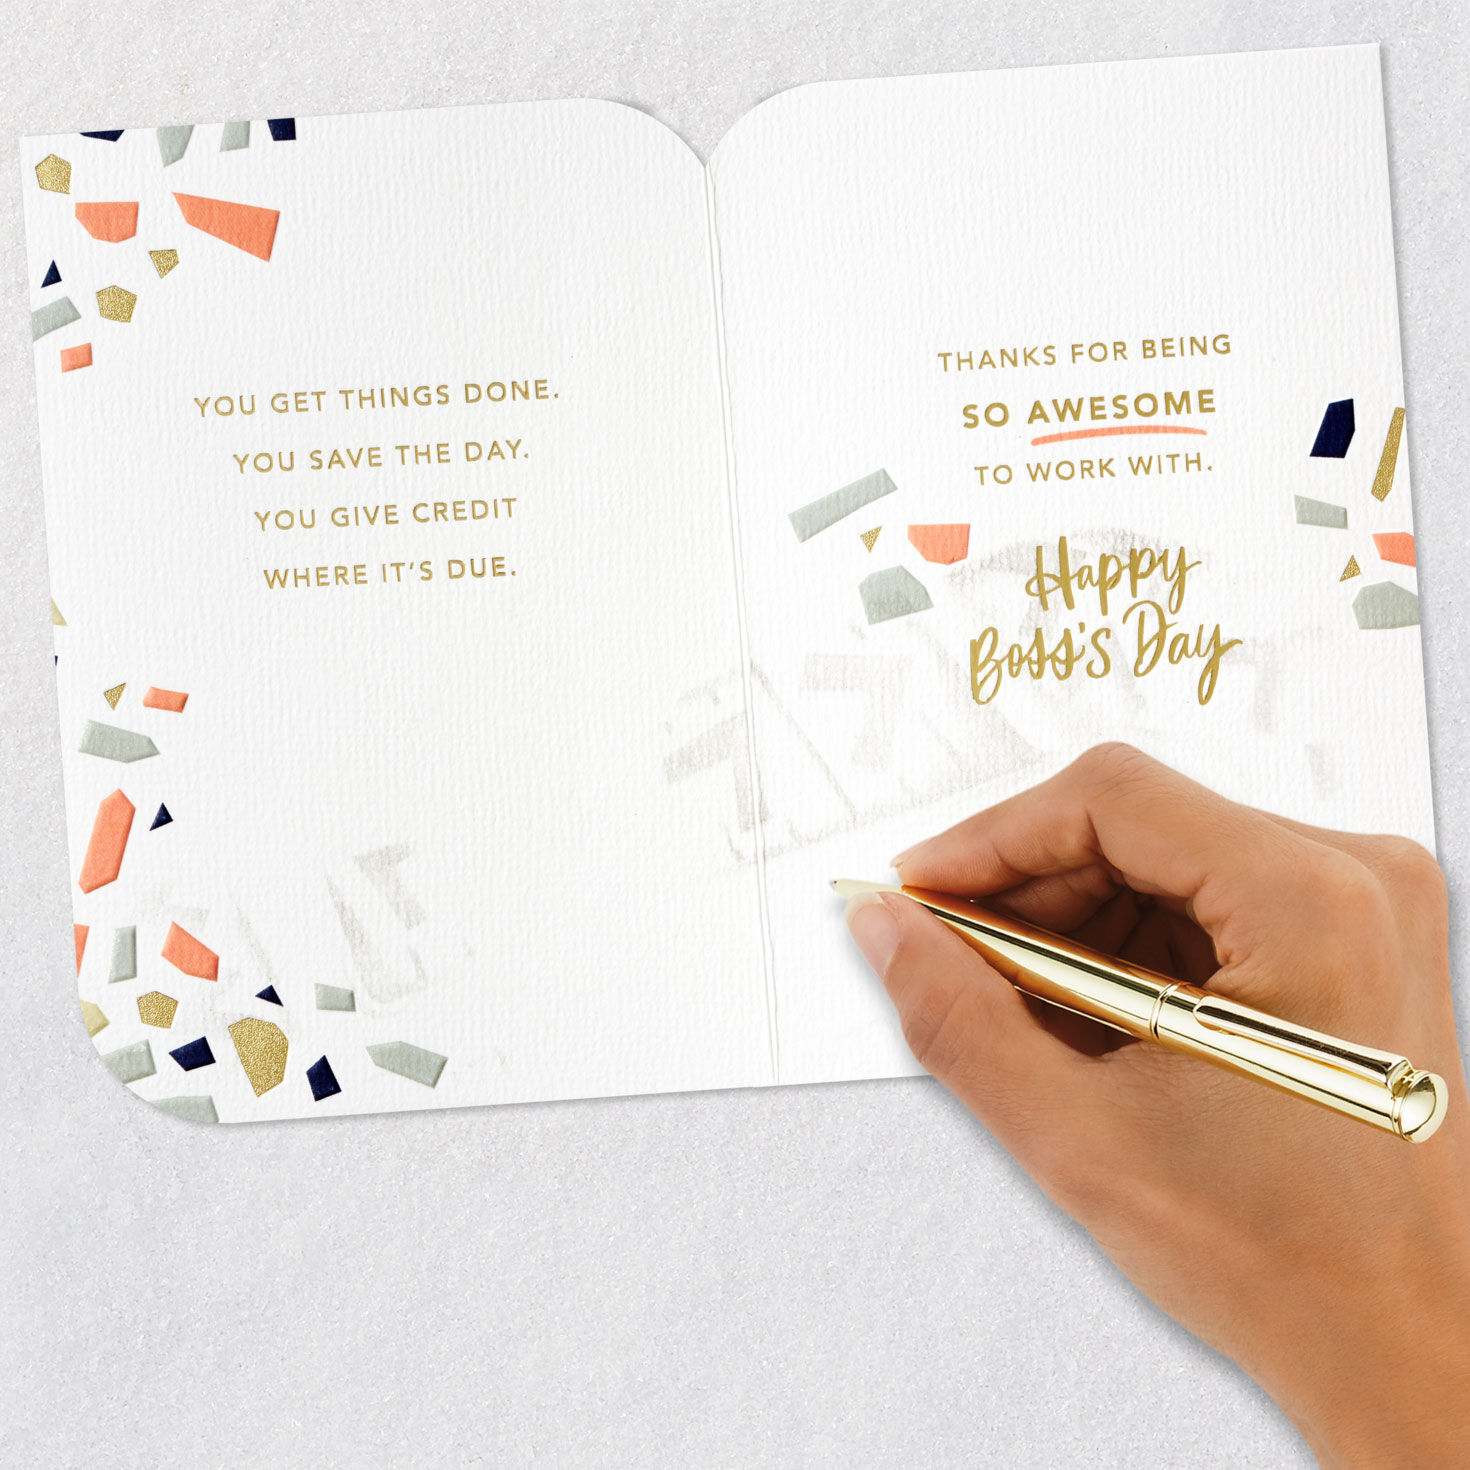 YOU GET THINGS DONE.
YOU SAVE THE DAY.
YOU GIVE CREDIT
WHERE IT'S DUE.
THANKS FOR BEING
SO AWESOME
TO WORK WITH.
Happy
Boss's Day